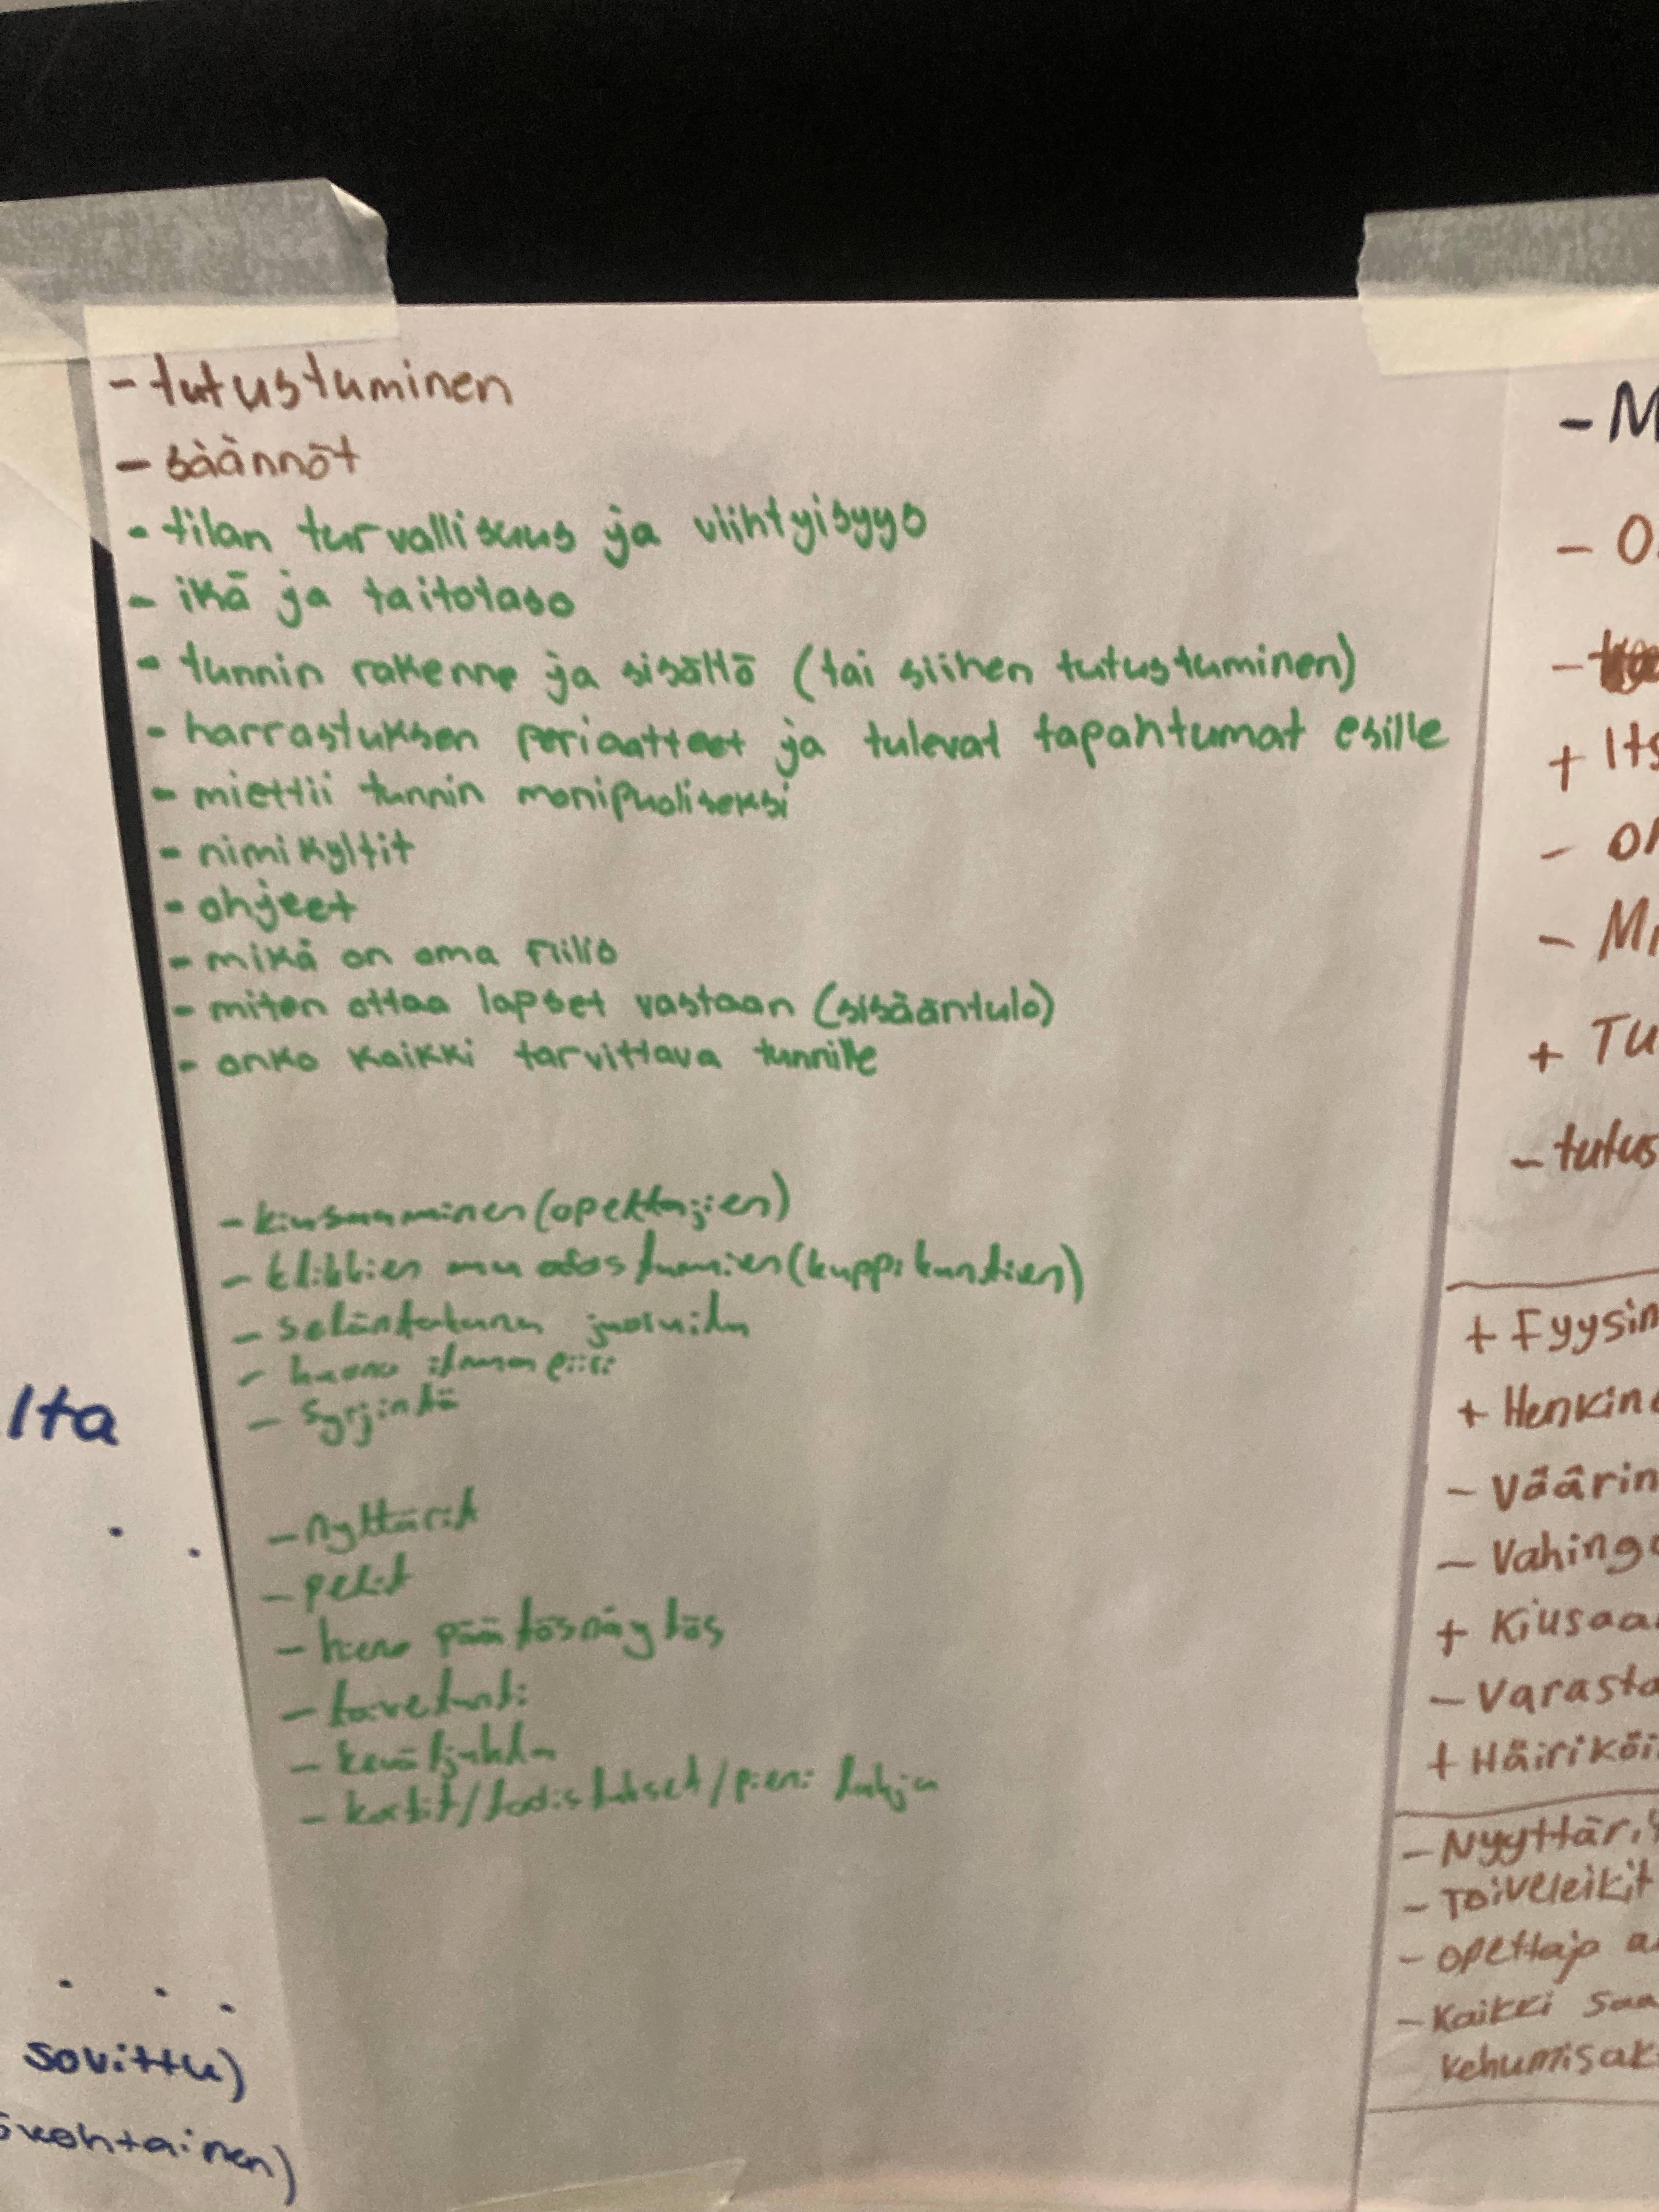 - tutustuminen
- säännöt
- tilan turvallisuus ja viihtyisyys
- ikä ja taitotaso
- tunnin rakenne ja sisältö (tai siihen tutustuminen)
- harrastuksen periaatteet ja tulevat tapahtumat esille
- miettii tunnin monipuoliseksi
- nimikyltit
- ohjeet
- mikä on oma fiilis
- miten ottaa lapset vastaan (sisääntulo)
- onko kaikki tarvittava tunnille
- kiusaaminen (opettajien)
- klikkien muodostumien (kuppikuntien)
- seläntakana juoruilu
- huono ilmapiiri
- syrjintä
- nyttärit
- pelit
- hieno päätösnäytös
- kevätjuhla
- kortit/todistukset/pieni lahja
lta
sovittu)
kohtainen)
- M
- O
+ Its
-
- Mi
+ Tu
- tutus
+ Fyysin
+ Henkin
- Väärin
- Vahing
+ Kiusaa
- Varasta
+ Häiriköi
- Nyyttäri
- Toiveleikit
- opettaja a
- Kaikki saa
kehumisak